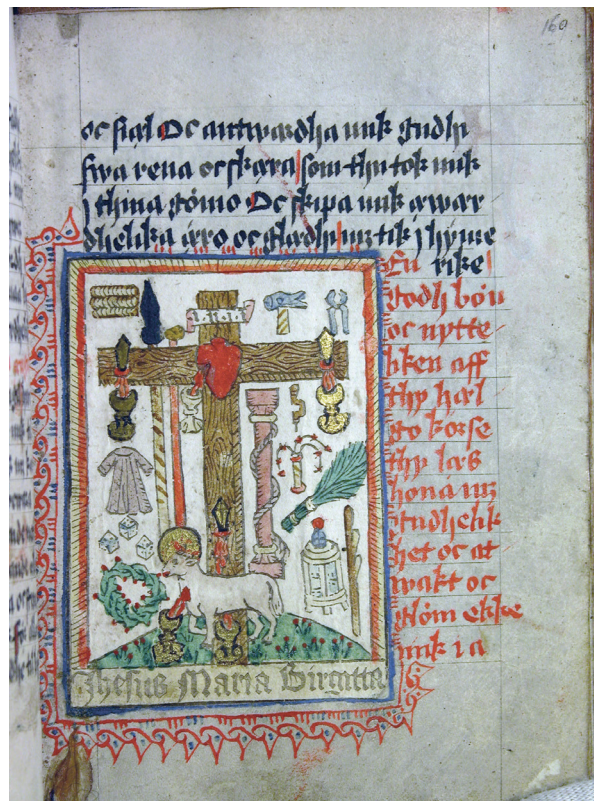 160
oc siæl Oc antwardha mik gudhi
swa rena oc skæra som thu tok mik
j thina gömo Oc skipa mik æwær
dhelika æro oc glædhi mz tik j hyme
rike
En
godh bön
oc nytte
liken aff
thy hæl
go korse
thy læs
hona mz
gudhelik
het oc at
wakt oc
glöm ekke
mik ı a
Jhesus Maria Birgitta